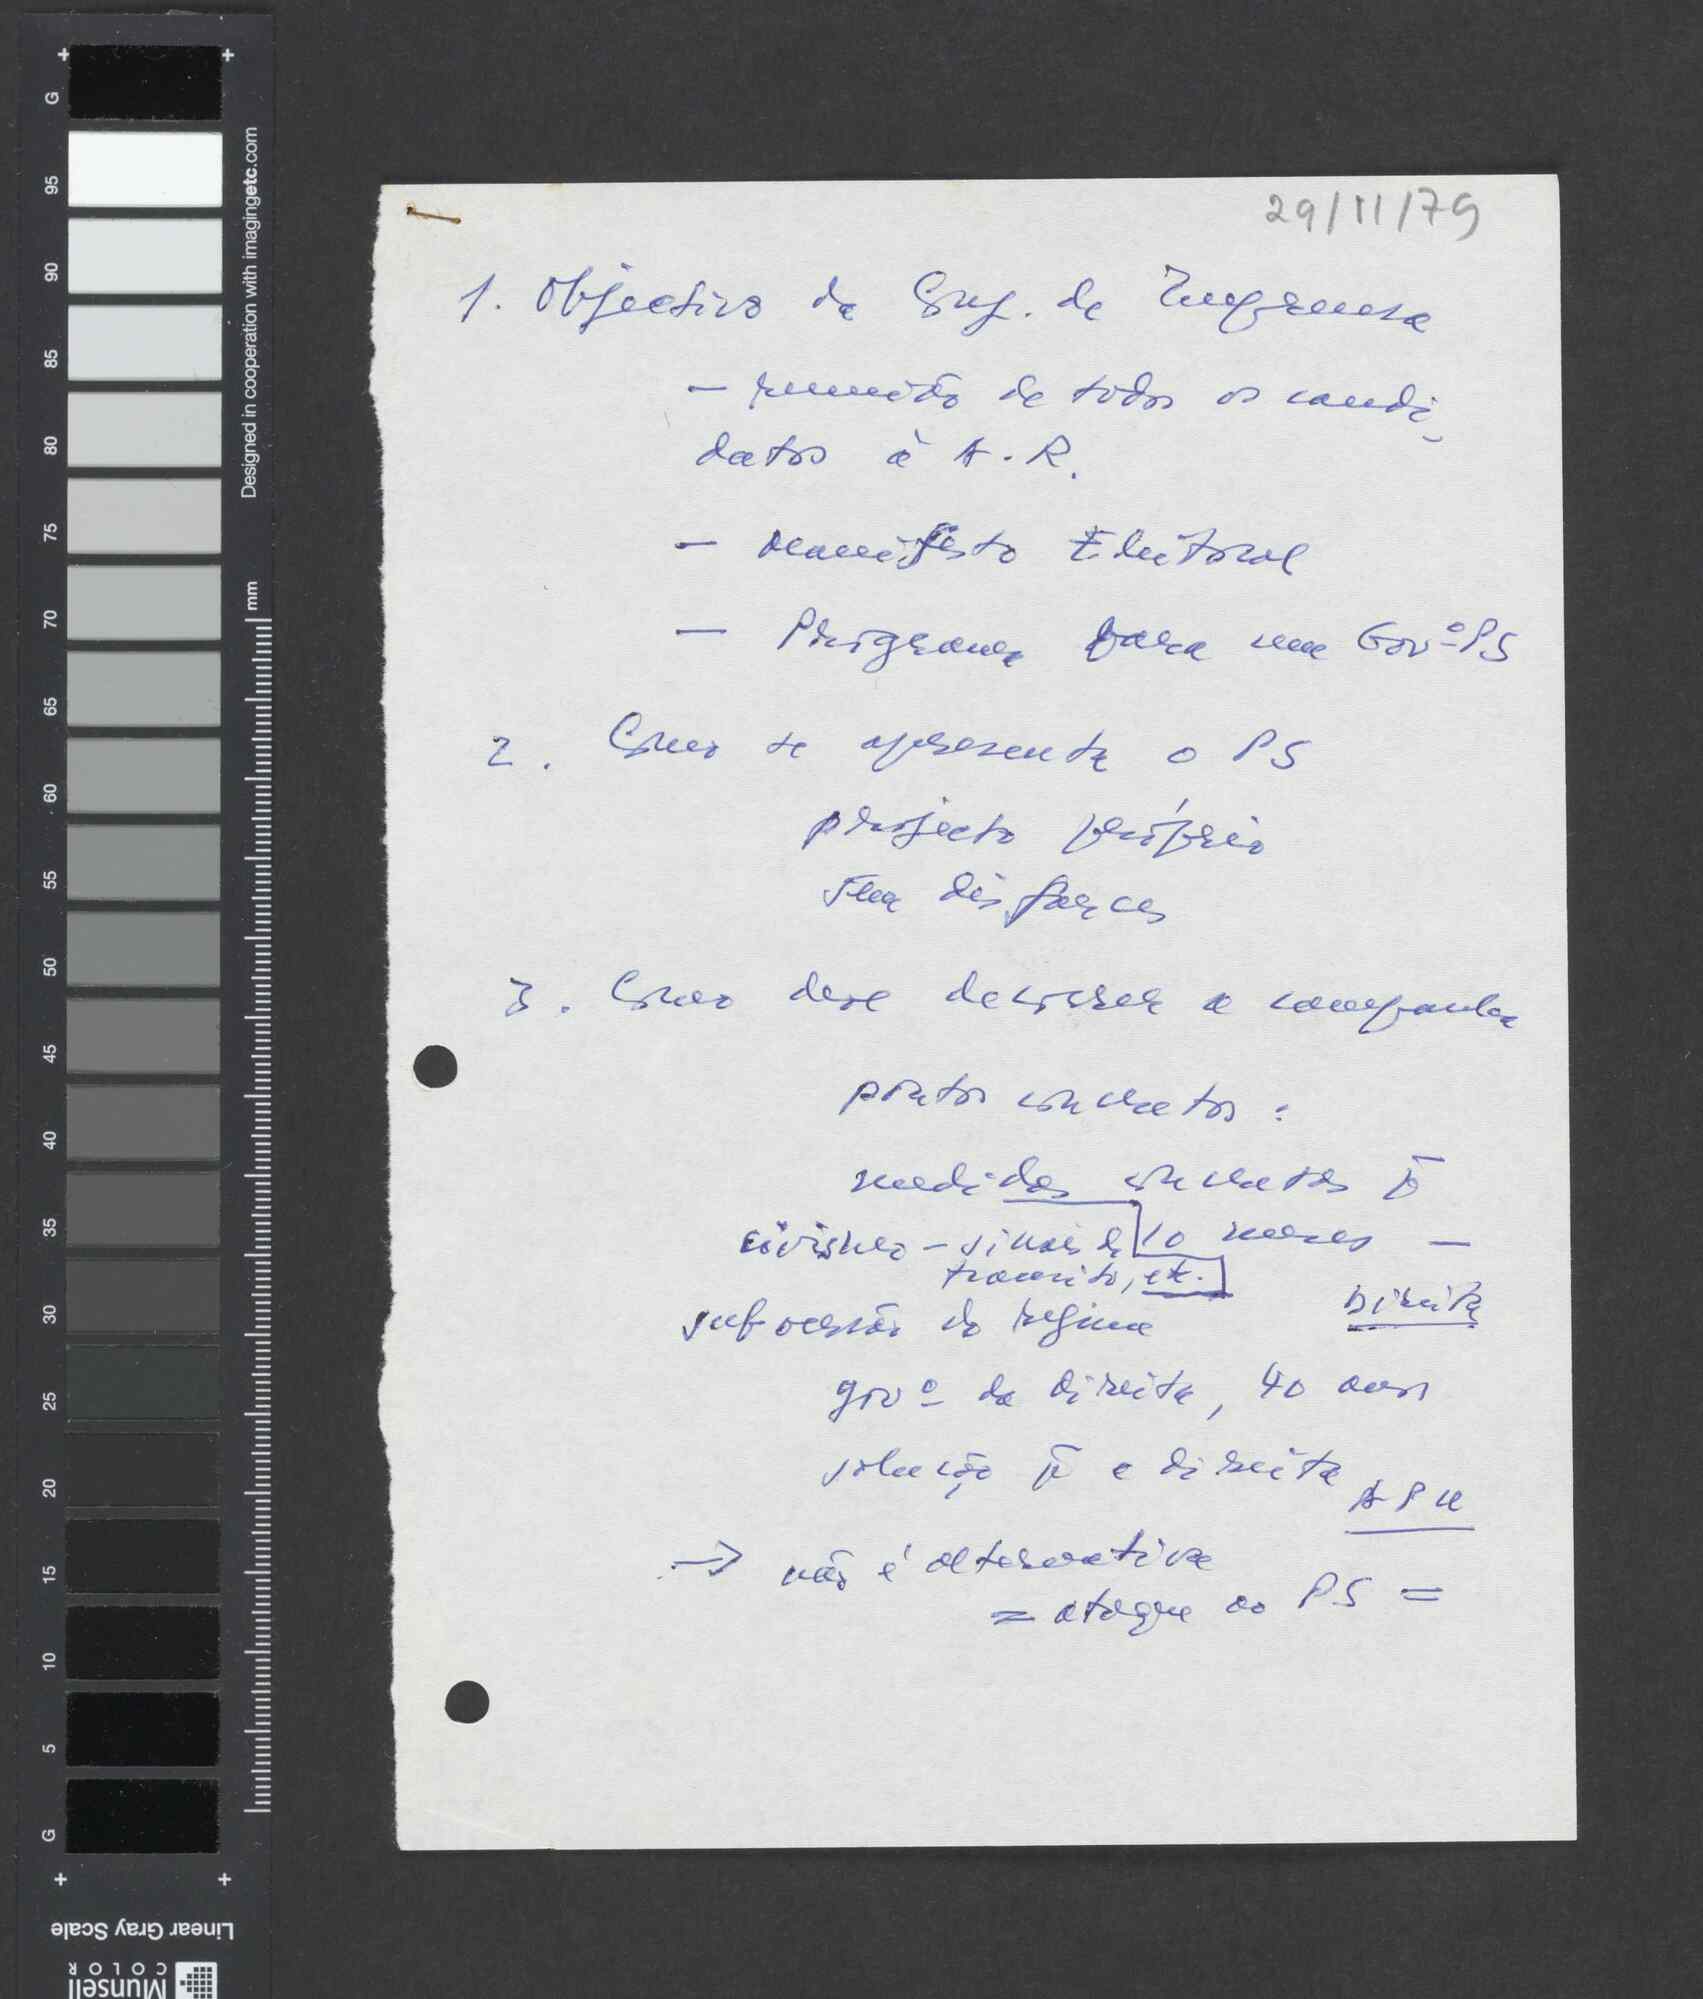 29/11/79
1. Objectivo da Conf. de Imprensa
- reunião de todos os candi-
datos à A.R.
- manifesto Eleitoral
- Programa para um Govº PS
2. Como se apresenta o PS
projecto próprio
sem disfarces
3. Como deve decorrer a campanha
pontos concretos:
medidas concretas p
civismo - sinais de 10 meses -
transito, etc.
Direita
subversão do regime
govº da direita, 40 anos
solução p a direita
APU
→ não é alternativa
= ataque ao PS =
G
95
90
85
80
75
70
65
60
55
50
45
40
35
30
25
20
15
10
5
G
Designed in cooperation with imagingetc.com
mm
Linear Gray Scale
Munsell
COLOR